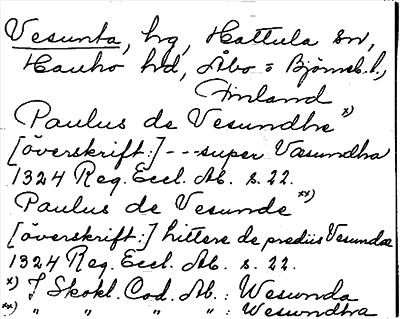 Vesunta, hg, Hattula sn,
Hauho hd, Åbo o Björneb. l.,
Finland
Paulus de Vesundhe x)
[överskrift:] --- super Væsundha
1324 Reg. Eccl. Ab. s. 22.
Paulus de Vesunde xx)
[överskrift:] littere de prediis Vesundæ
1324 Reg. Eccl. Ab. s. 22.
x) I Skokl. Cod. Ab. : Wesunda
xx) " " " " : Wesundhra